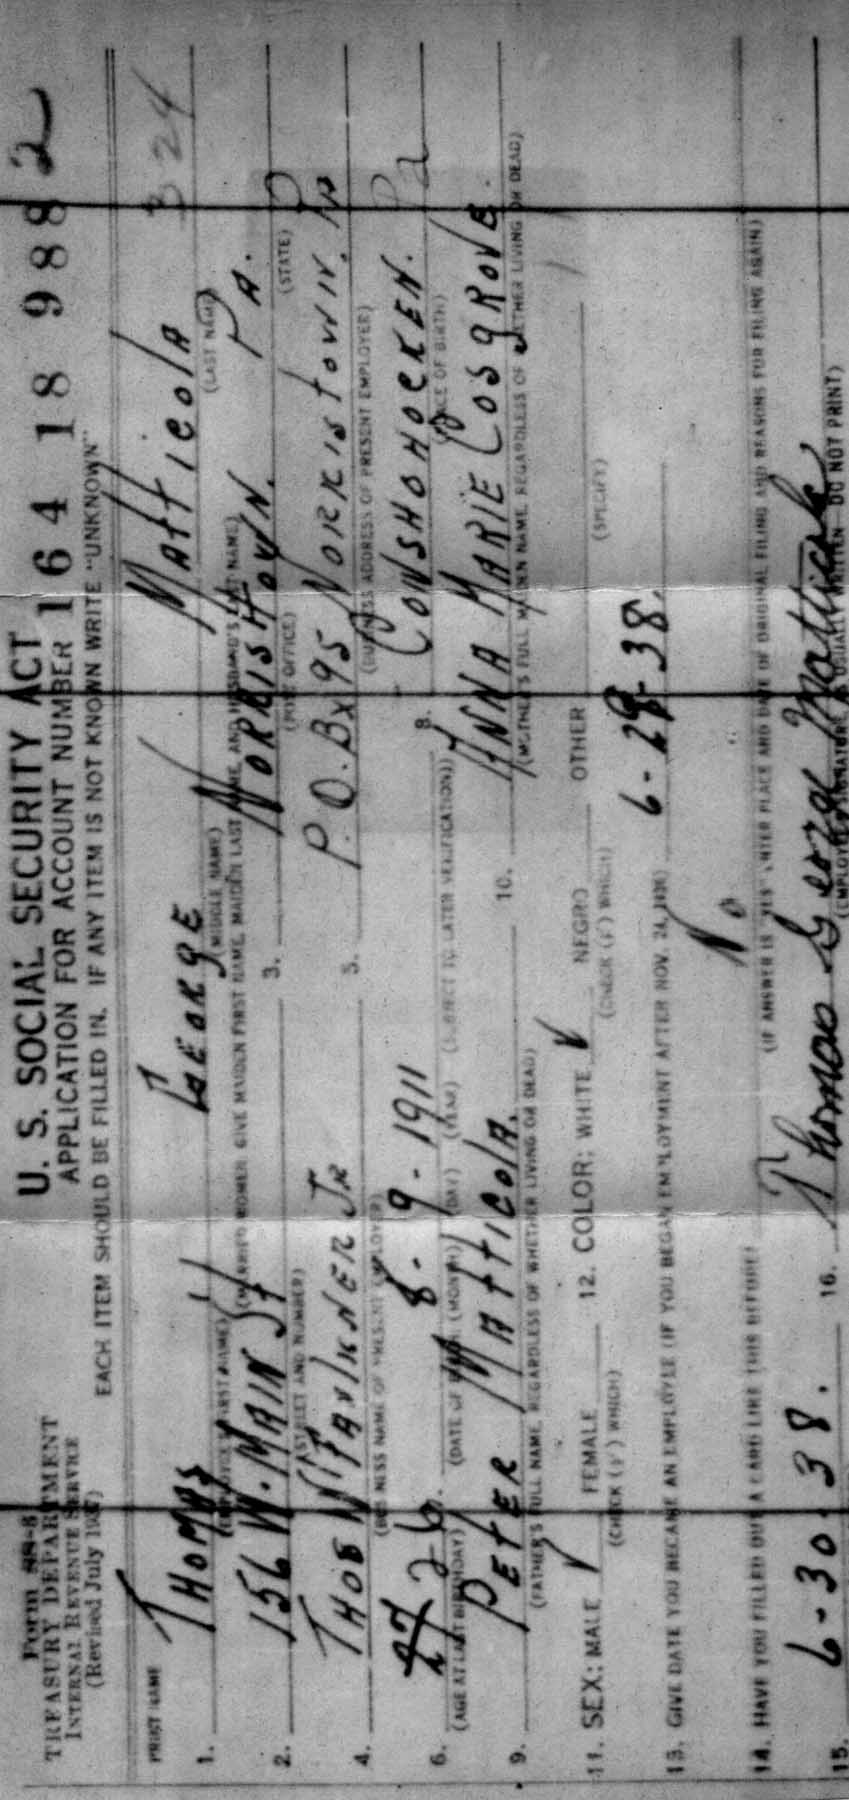 Form SS-5
TREASURY DEPARTMENT
INTERNAL REVENUE SERVICE
(Revised July 1937)
U. S. SOCIAL SECURITY ACT
APPLICATION FOR ACCOUNT NUMBER 164 18 9882
EACH ITEM SHOULD BE FILLED IN. IF ANY ITEM IS NOT KNOWN WRITE "UNKNOWN"
324
PRINT NAME
1. THOMAS GEORGE Matticola
(EMPLOYEE'S FIRST NAME) (MIDDLE NAME) (LAST NAME)
(MARRIED WOMEN: GIVE MAIDEN FIRST NAME, MAIDEN LAST NAME, AND HUSBAND'S LAST NAME)
2. 156 W. MAIN St 3. NORRISTOWN. PA.
(STREET AND NUMBER) (POST OFFICE) (STATE)
4. THOS W FAULKNER JR 5. P.O. Bx 95 NORRISTOWN. PA
(BUSINESS NAME OF PRESENT EMPLOYER) (BUSINESS ADDRESS OF PRESENT EMPLOYER)
6. 27 26. 8 - 9 - 1911 8. CONSHOHOCKEN. Pa
(AGE AT LAST BIRTHDAY) (DATE OF BIRTH: (MONTH) (DAY) (YEAR) (SUBJECT TO LATER VERIFICATION)) (PLACE OF BIRTH)
9. PETER MATTICOLA. 10. ANNA MARIE COSGROVE.
(FATHER'S FULL NAME, REGARDLESS OF WHETHER LIVING OR DEAD) (MOTHER'S FULL MAIDEN NAME, REGARDLESS OF WHETHER LIVING OR DEAD)
11. SEX: MALE ✓ FEMALE 12. COLOR: WHITE ✓ NEGRO OTHER
(CHECK (✓) WHICH) (CHECK (✓) WHICH) (SPECIFY)
13. GIVE DATE YOU BECAME AN EMPLOYEE (IF YOU BEGAN EMPLOYMENT AFTER NOV. 24, 1936) 6-29-38.
14. HAVE YOU FILLED OUT A CARD LIKE THIS BEFORE? No
(IF ANSWER IS "YES" ENTER PLACE AND DATE OF ORIGINAL FILING AND REASONS FOR FILING AGAIN)
15. 6-30-38. 16. Thomas George Matticola
(EMPLOYEE'S SIGNATURE, AS USUALLY WRITTEN. DO NOT PRINT)